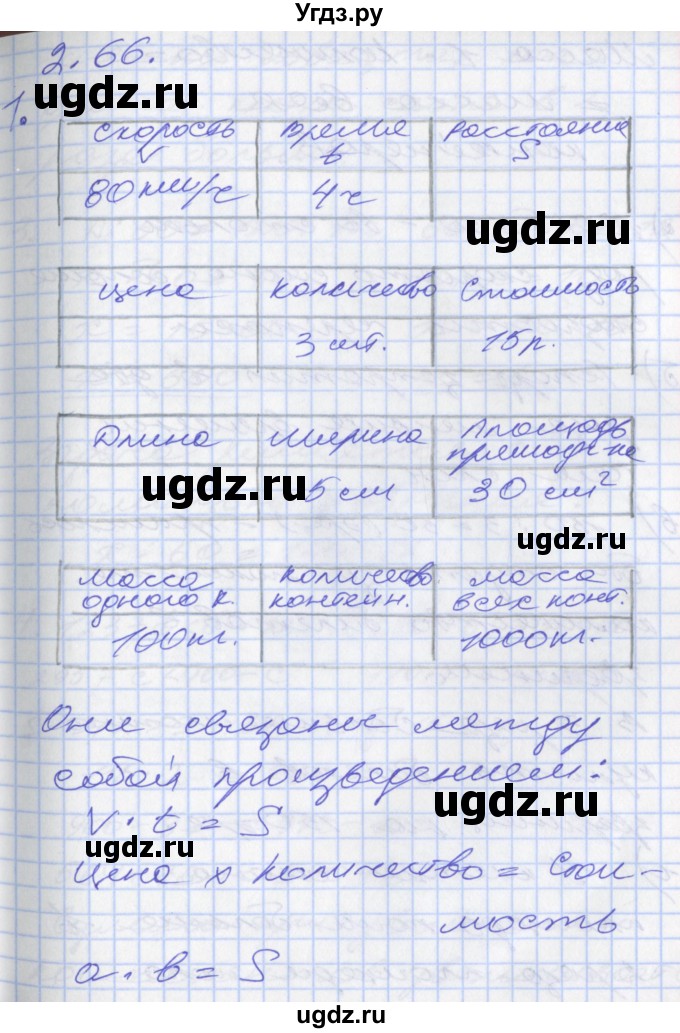 Угдз.ру
2.66.
ugdz.ru
1.
Скорость V Время t Расстояние S
80 км/ч 4ч
ugdz.ru
цена количество Стоимость
3 шт. 15р.
Длина Ширина Площадь прямоуг-ка
ugdz.ru
5 см 30 см²
ugdz.ru
Масса одного к. количество контейн. масса всех конт.
100кг. 1000кг.
Они связаны между
собой произведением:
ugdz.ru
V · t = S
ugdz.ru
Цена x количество = Стои-
мость
a · b = S
ugdz.ru